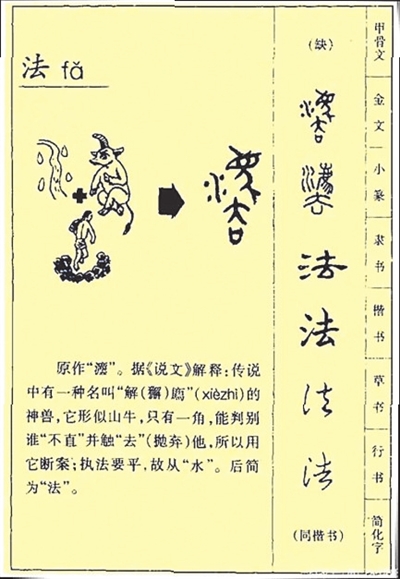 法 fǎ
原作“灋”。据《说文》解释:传说
中有一种名叫“解(獬)廌”(xièzhì)的
神兽,它形似山牛,只有一角,能判别
谁“不直”并触“去”(抛弃)他,所以用
它断案;执法要平,故从“水”。后简
为“法”。
(缺)
灋
灋
法
法
法
法
(同楷书)
甲骨文
金文
小篆
隶书
楷书
草书
行书
简化字